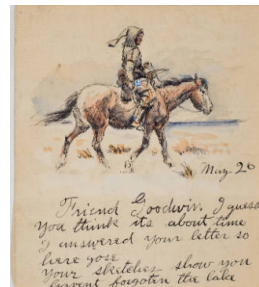 May 20
Friend Goodwin. I guess
you think its about time
I answered your letter so
here gose
your sketches show you
havent forgotten the lake